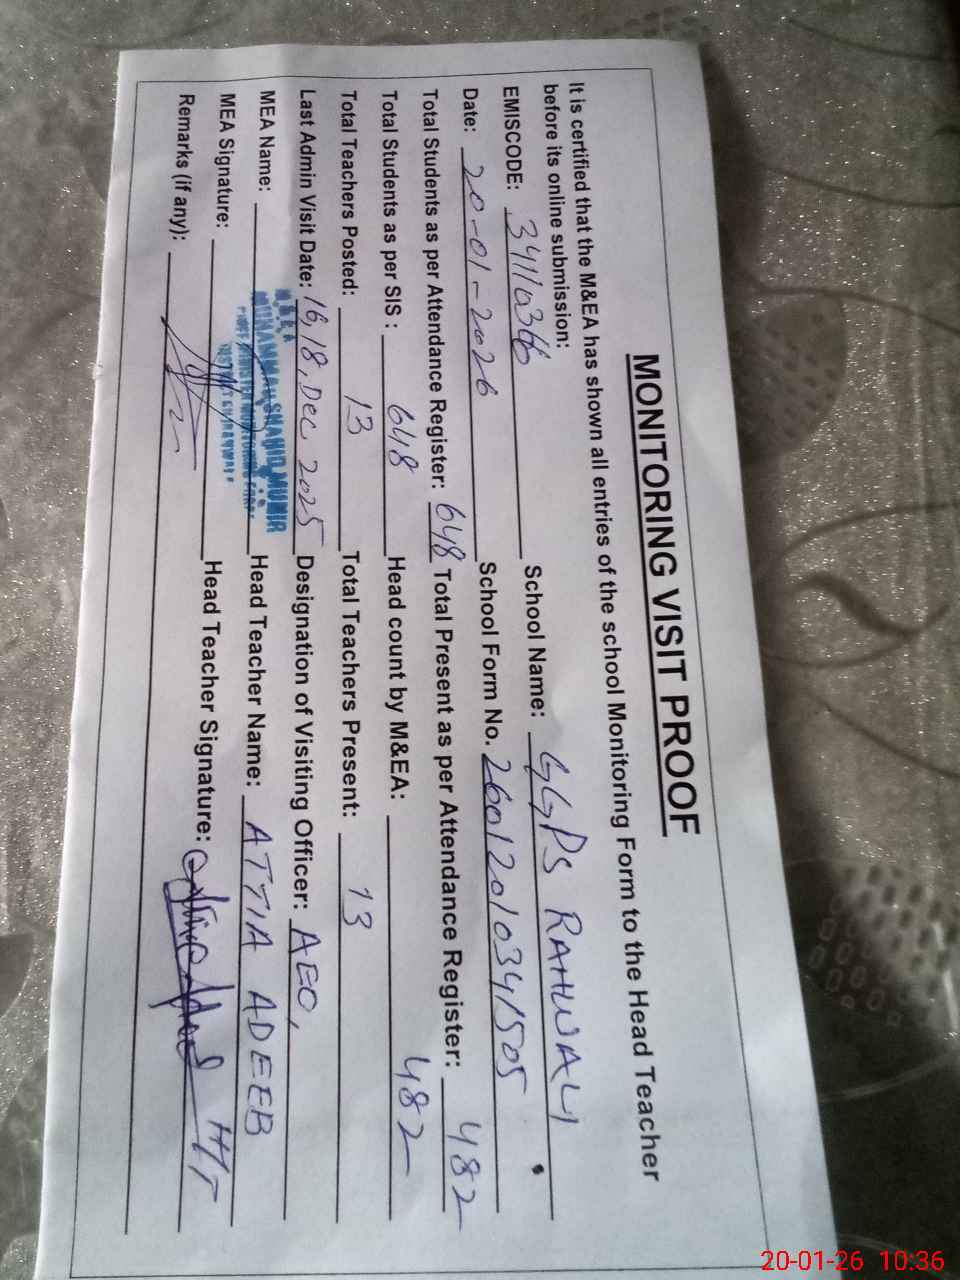 MONITORING VISIT PROOF
It is certified that the M&EA has shown all entries of the school Monitoring Form to the Head Teacher
before its online submission:
EMISCODE: 34110366 School Name: GGPS RAHWALI
Date: 20-01-2026 School Form No. 26012010341505
Total Students as per Attendance Register: 648 Total Present as per Attendance Register: 482
Total Students as per SIS : 648 Head count by M&EA: 482
Total Teachers Posted: 13 Total Teachers Present: 13
Last Admin Visit Date: 16,18, Dec 2025 Designation of Visiting Officer: AEO,
MEA Name: MUHAMMAD SHAHID MUNIR Head Teacher Name: ATTIA ADEEB
MEA Signature: Head Teacher Signature: HT
Remarks (if any):
20-01-26 10:36